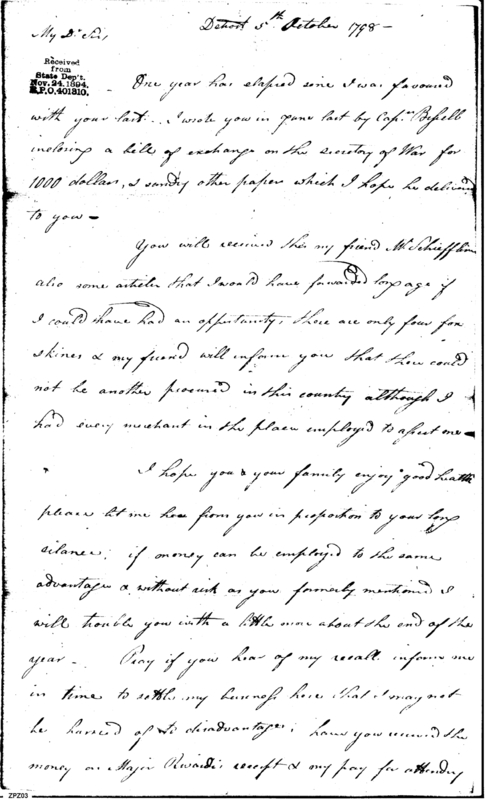 Detroit 5th October 1798 -
My Dr Sir,
Received
from
State Dep't.
Nov. 24. 1894.
R.P.O, 401310.
One year has elapsed sine I was favoured
with your last. I wrote you in June last by Capn Bissell
inclosing a bill of exchange on the secretory of War for
1000 dollars, & sundry other papers which I hope he delivered
to you -
You will received thro my friend Mr Schiefflin
also some articles that I would have forwarded long age if
I could have had an oppertunity, there are only four fox
skines & my friend will inform you that there could
not be another procured in this country although I
had every merchant in the place employed to assist me -
I hope you & your family enjoy good health
please let me hear from you in proportion to your long
silance; if money can be employed to the same
advantage & without risk as you formerly mentioned I
will trouble you with a little more about the end of the
year - Pray if you hear of my recall inform me
in time to settle my business here that I may not
be hurried of to disadvantage; have you received the
money on Major Rivardi's receipt & my pay for attending
ZPZ03